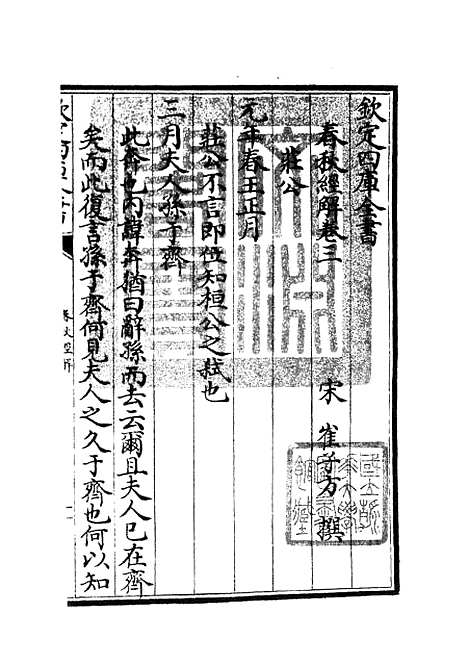 欽定四庫全書
春秋經解卷三
宋 崔子方 撰
莊公
元年春王正月
莊公不言即位知桓公之弑也
三月夫人孫于齊
此奔也内諱奔猶曰辭孫而去云爾且夫人已在齊
矣而此復言孫于齊何見夫人之久于齊也何以知
春秋經解